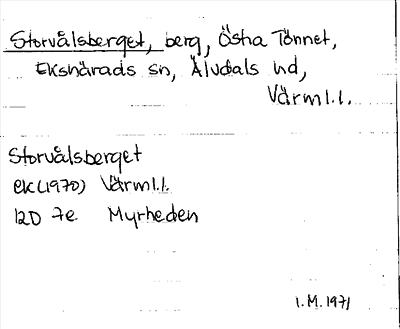 Storvålsberget, berg, Östra Tönnet,
Ekshärads sn, Älvdals hd,
Värml.l.
Storvålsberget
ek(1970) Värml.l.
12D 7e. Myrheden
I.M.1971